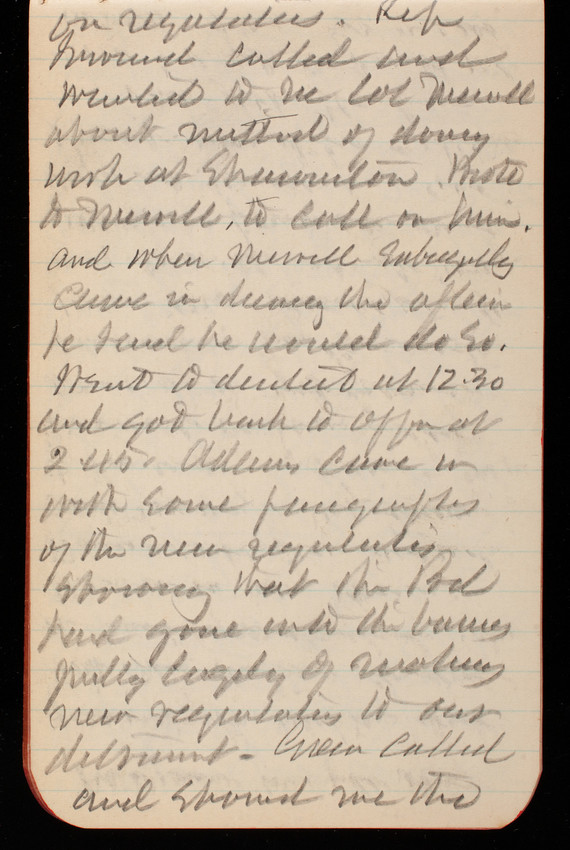 on regulations. Rep
called and
wanted to see Col Newell
about method of doing
work at Wrote
to Newell, to call on him.
and when Newell
came in during the aftern
he said he would do so.
Went to dentist at 12.30
and got back to office at
2.45. Adams came in
with some paragraphs
of the new regulations
showing that the Bd
had gone into the
pretty largely of making
new regulations to our
detriment. Green called
and showed me the